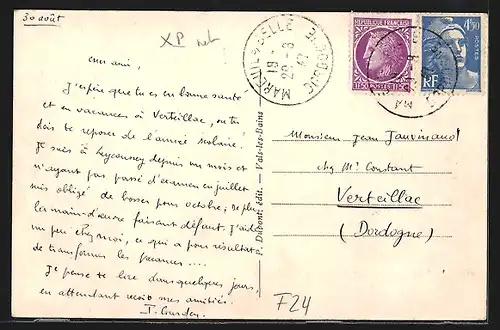 30 août
XP
cher ami,
J'espère que tu es en bonne santé
et en vacances à Verteillac, où tu
dois te reposer de l'année scolaire.
Je suis à depuis un mois et
n'ayant pas passé d'examen en juillet
suis obligé de bosser pour octobre; de plus
la main-d'œuvre faisant défaut, j'aide
un peu chez moi, ce qui a pour résultat
de transformer les vacances ....
Je pense te lire dans quelques jours,
en attendant reçois mes amitiés.
MAREUIL-S-BELLE
19 -
29 - 8
47
DORDOGNE
REPUBLIQUE FRANÇAISE
1F50 POSTES 1F50
4F50
POSTES
RF
P. Dupont, édit. — Vals-les-Bains
Monsieur Jean
chez Mr Constant
Verteillac
(Dordogne)
F24